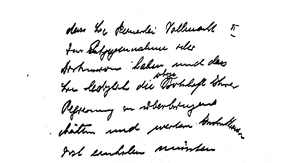 dass Sie keinerlei Vollmacht
zur Entgegennahme oder
haben und dass
Sie lediglich die Botschaft Ihrer
Regierung zu überbringen
hätten und weitere
erst einholen müssten